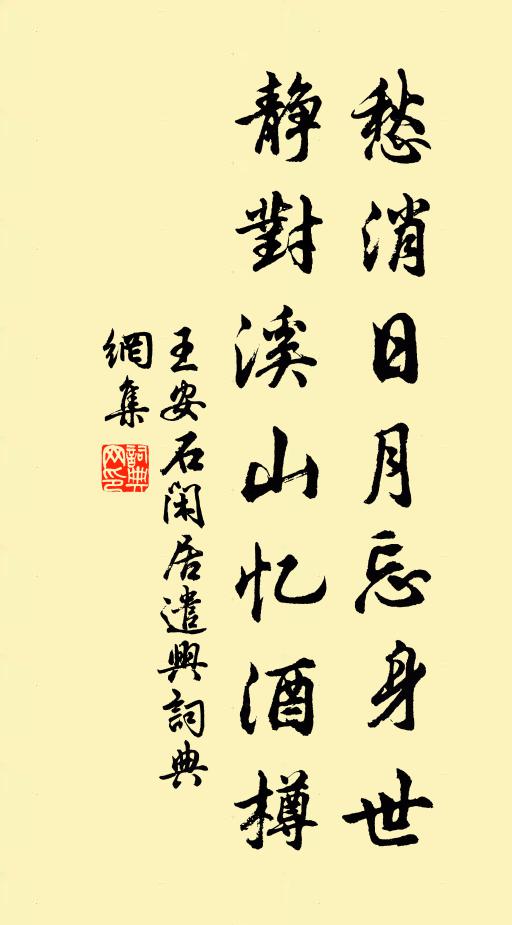 愁消日月忘身世
静對溪山忆酒樽
王安石閑居遣興詞典
網集
詞典
网印